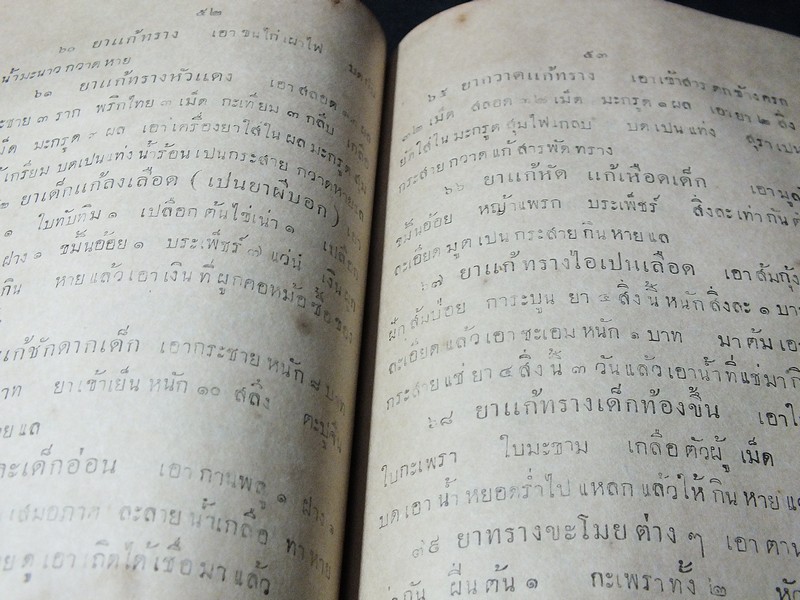 ๕๒
๖๐ ยาแก้ทราง เอาขนไก่เผาไฟ
น้ำมะนาวกวาดหาย
๖๑ ยาแก้ทรางหัวแดง เอาสลอด
๓ ราก พริกไทย ๓ เม็ด กะเทียม ๓ กลีบ
มะกรูด ๙ ผล เอาเครื่องยาใส่ในผลมะกรูด
เกรียม บดเปนแท่ง น้ำร้อนเปนกระสาย กวาดหาย
ยาเด็กแก้ลงเลือด (เปนยาผีบอก)
๑ ใบทับทิม ๑ เปลือกต้นไข่เน่า ๑
ฝาง ๑ ขมิ้นอ้อย ๑ บระเพ็ชร์ ๗ แว่น เงิน
กิน หายแล้วเอาเงินที่ผูกคอหม้อซื้อของ
แก้ชักดากเด็ก เอากระชาย หนัก ๘ บาท
ยาเข้าเย็นหนัก ๑๐ สลึง
แล
เด็กอ่อน เอากานพลู ๑ ฝาง ๑
เสมอภาค ละลายน้ำเกลือ ทาหาย
ดูเอาเถิดได้เชื่อมาแล้ว
๕๓
๖๕ ยากวาดแก้ทราง เอาเข้าสารตกข้างครก
๓๒ เม็ด สลอด ๓๒ เม็ด มะกรูด ๑ ผล เอายา ๒ สิ่ง
ยัดใส่ในมะกรูด สุมไฟแกลบ บดเปนแท่ง สุราเปน
กระสาย กวาดแก้สารพัดทราง
๖๖ ยาแก้หัด แก้เหือดเด็ก
ขมิ้นอ้อย หญ้าแพรก บระเพ็ชร์ สิ่งละเท่ากัน
ละเอียด มูตเปนกระสายกินหายแล
๖๗ ยาแก้ทรางไอเปนเลือด เอาส้มกุ้ง
ฝักส้มป่อย การะบูน ยา ๔ สิ่งนี้ หนักสิ่งละ ๑ บาท
ละเอียดแล้วเอาชะเอมหนัก ๑ บาท มาต้ม
กระสายแช่ ยา ๔ สิ่งนี้ ๓ วันแล้วเอาน้ำที่แช่มากิน
๖๘ ยาแก้ทรางเด็กท้องขึ้น
ใบกะเพรา ใบมะขาม เกลือตัวผู้ เม็ด
บดเอาน้ำหยอดร่ำไป แหลกแล้วให้กินหายแล
๗๙ ยาทรางขะโมยต่าง ๆ เอาตาน
กัน ฝิ่นต้น ๑ กะเพราทั้ง ๒